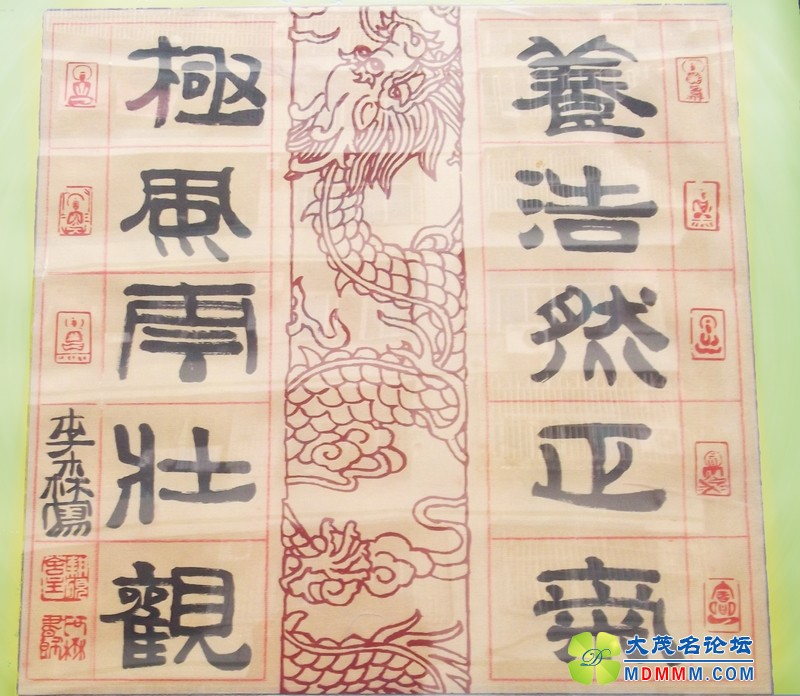 養浩然正氣
極風雲壯觀
李森寫
大茂名论坛
MDMMM.COM